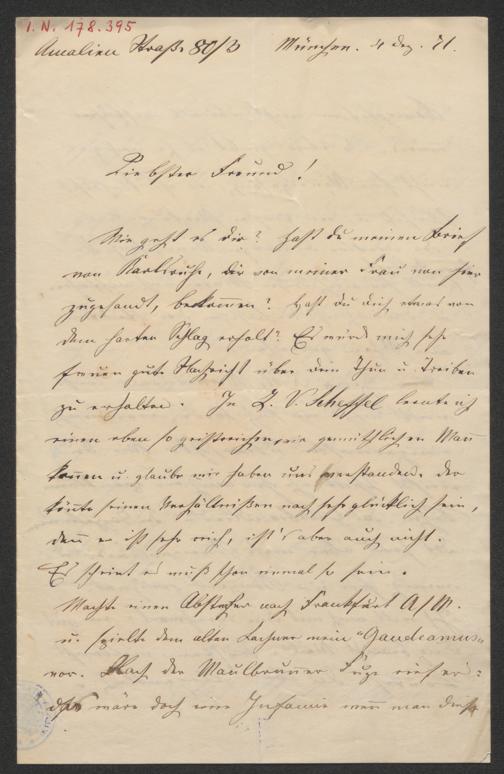 I. N. 178.395
Amalien Straße 80/3 München. 4 Dez. 71.
Liebster Freund!
Wie geht es dir? Hast du meinen Brief
von Karlsruhe, dir von meiner Frau von hier
zugesandt, bekommen? Hast du dich etwas von
dem harten Schlag erholt? Es würde mich sehr
freuen gute Nachricht über dein Thun u. Treiben
zu erhalten. In J. V. Scheffel lernte ich
einen eben so geistreichen, wie gemüthlichen Mann
kennen u. glaube wir haben uns verstanden. Der
könnte seinen Verhältnißen nach sehr glücklich sein,
denn er ist sehr reich, ist's aber auch nicht.
Es scheint es muß schon einmal so sein.
Machte einen Abstecher nach Frankfurt A/M.
u. spielte dem alten Lachner mein "Gaudeamus"
vor. Nach der Maulbronner Fuge rief er:
das wäre doch eine Infamie wenn man diese